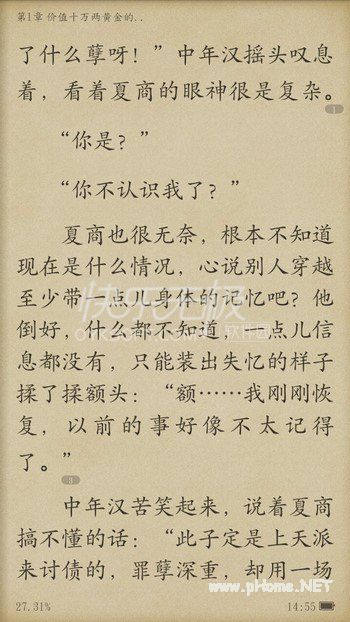 第1章 价值十万两黄金的..
了什么孽呀！”中年汉摇头叹息
着，看着夏商的眼神很是复杂。
1
“你是？”
“你不认识我了？”
夏商也很无奈，根本不知道
现在是什么情况，心说别人穿越
至少带一点儿身体的记忆吧？他
倒好，什么都不知道，一点儿信
息都没有，只能装出失忆的样子
揉了揉额头：“额……我刚刚恢
复，以前的事好像不太记得
了。”
3
中年汉苦笑起来，说着夏商
搞不懂的话：“此子定是上天派
来讨债的，罪孽深重，却用一场
www.pHome.NET
27.31%
14:55
快乐无极